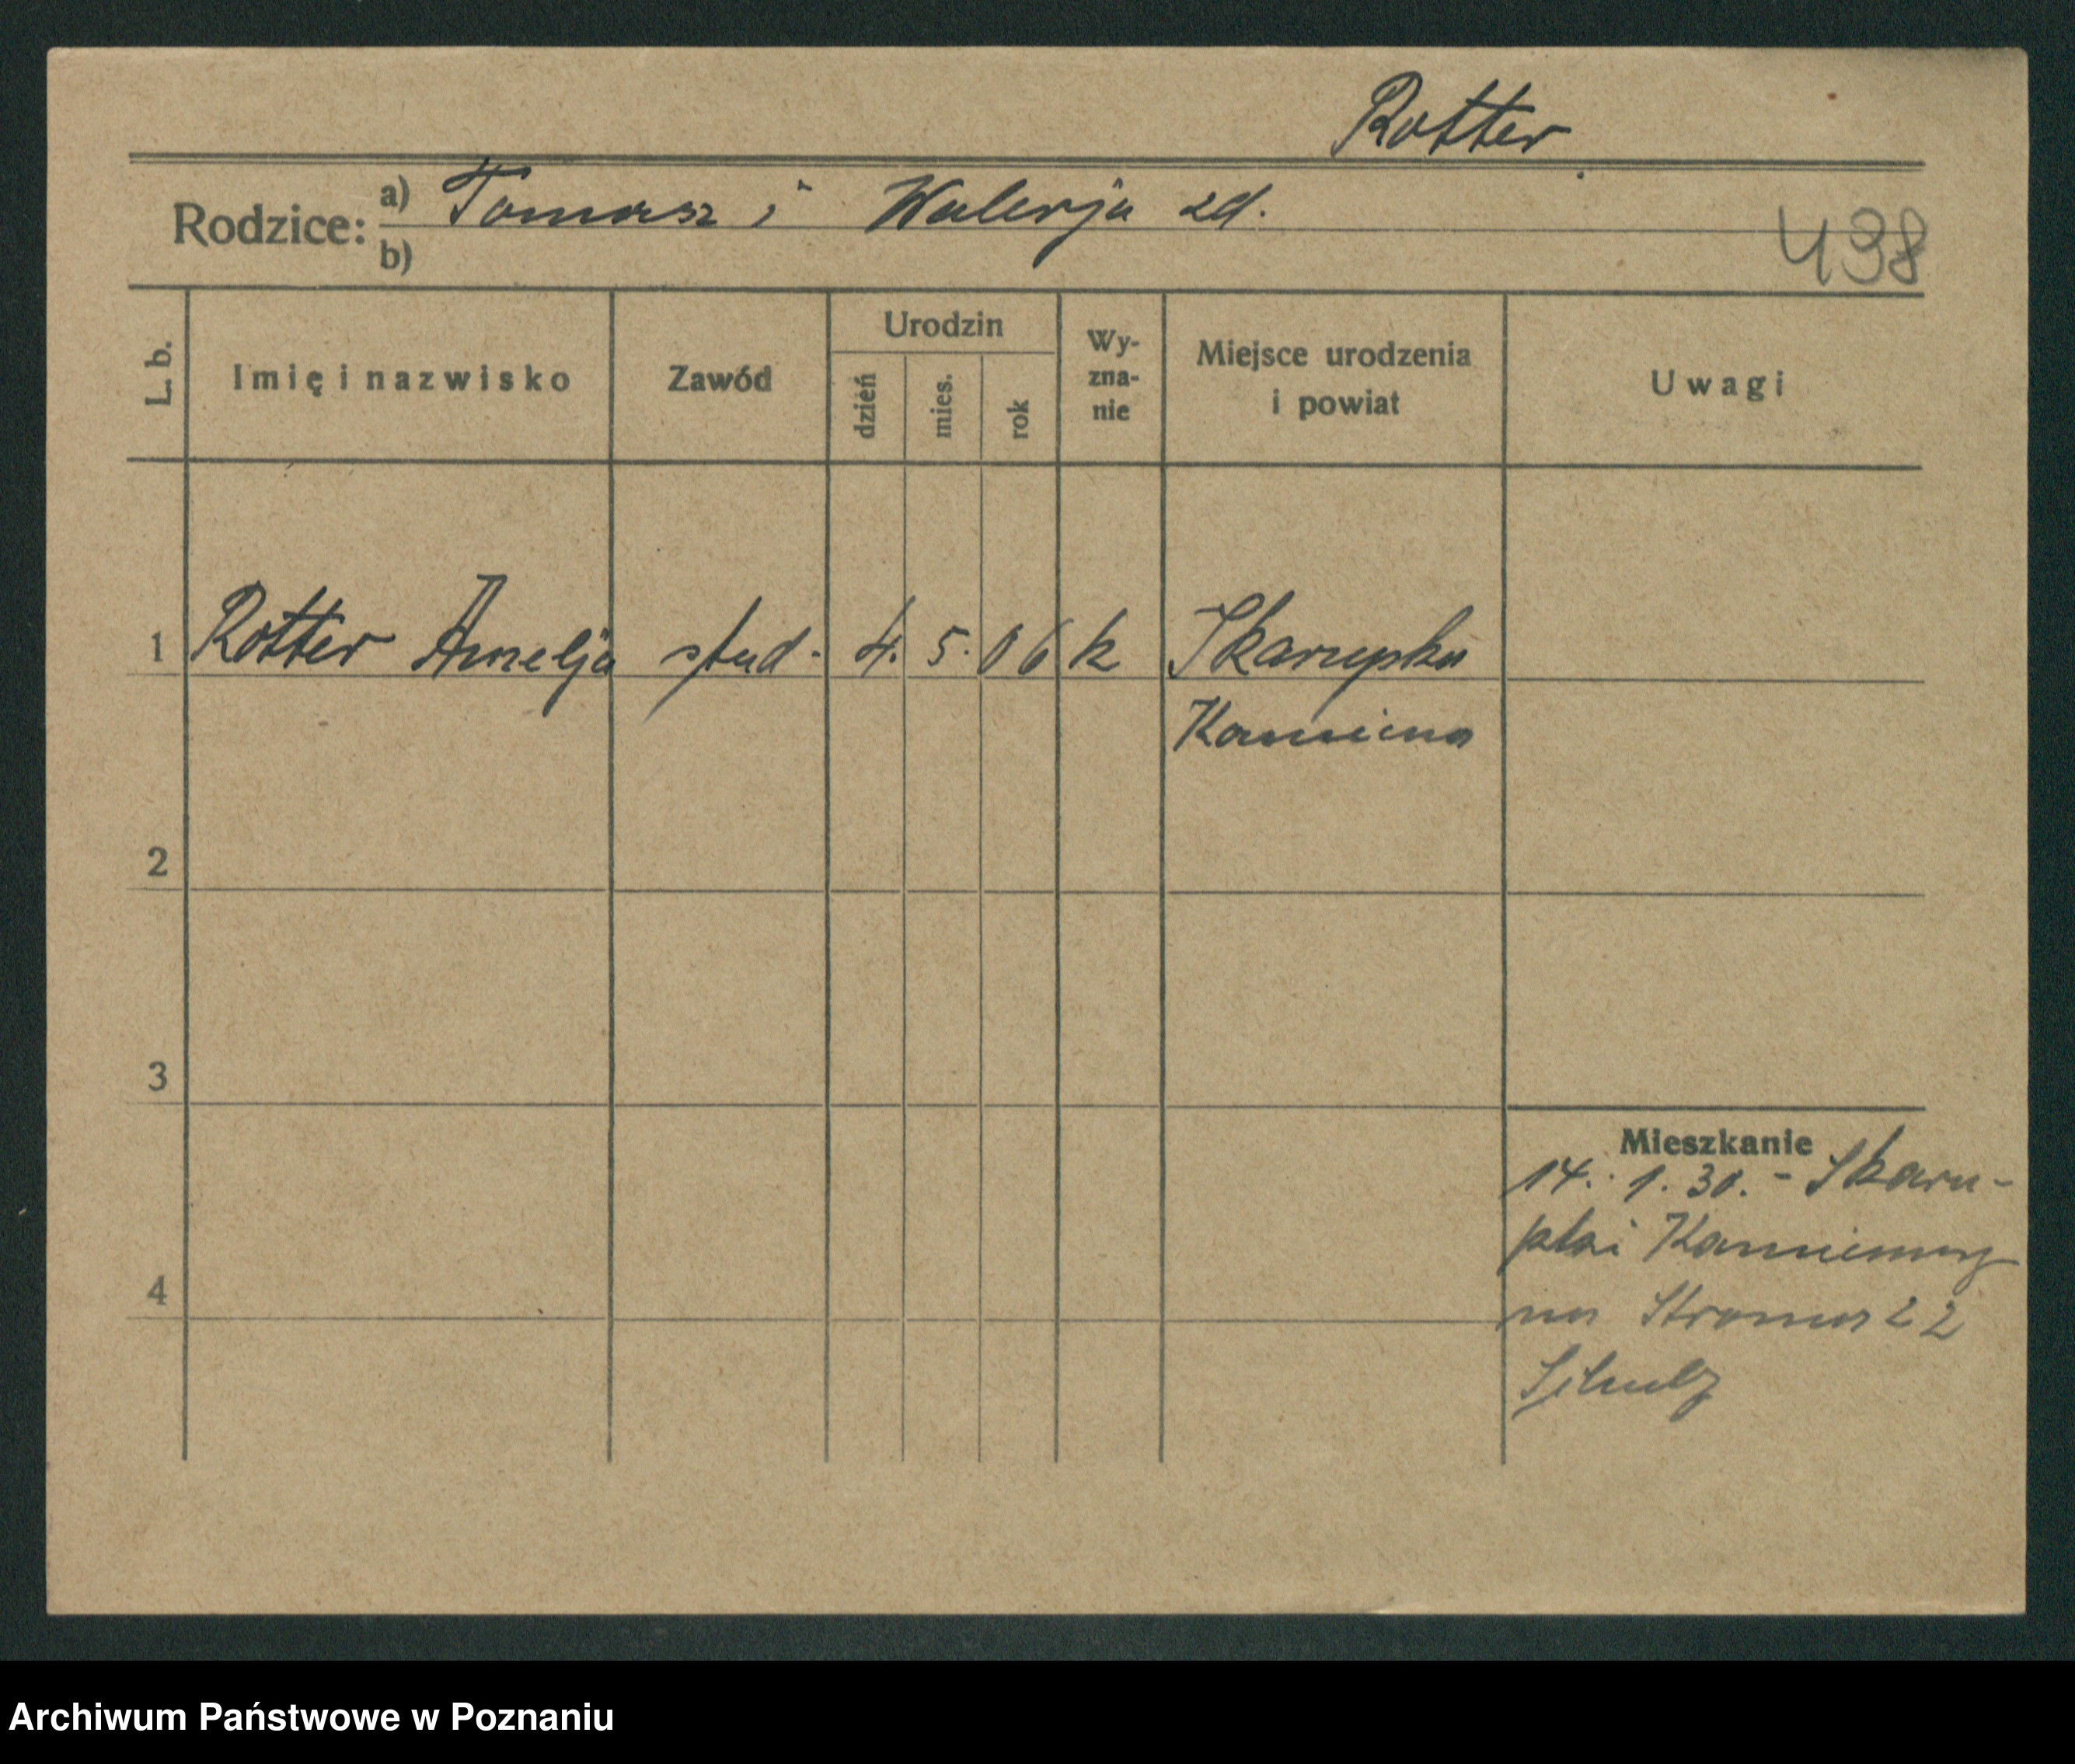 Rotter
Rodzice: a) Tomasz i Walerja zd.
b)
438
L. b.
Imię i nazwisko
Zawód
Urodzin
dzień
mies.
rok
Wy-
zna-
nie
Miejsce urodzenia
i powiat
Uwagi
1 Rotter Amelja stud. 4. 5. 06 k Skarupka
Kamienna
2
3
4
Mieszkanie
14. 1. 30. - Skaru-
pki Kamiennej
na Stroma 22
Schulz
Archiwum Państwowe w Poznaniu